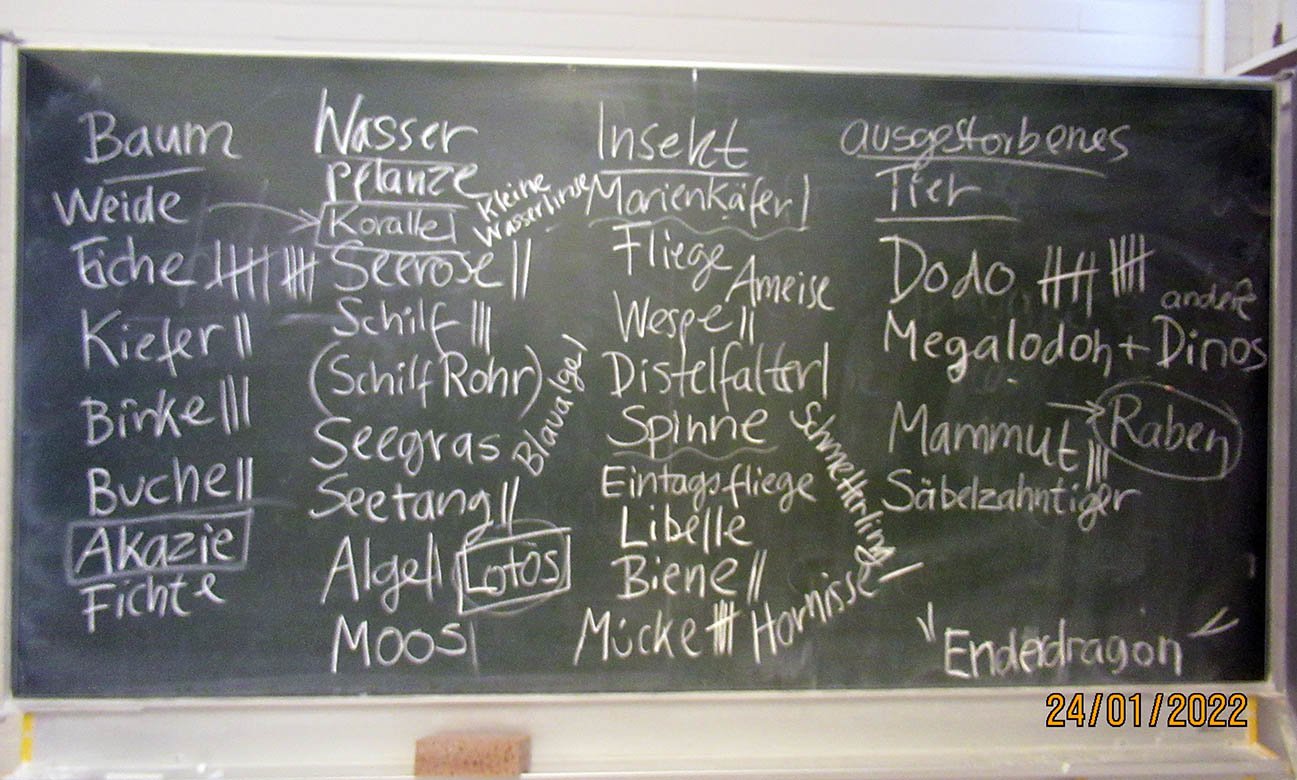 Baum
Weide
Eiche 卌 卌
Kiefer ||
Birke |||
Buche ||
Akazie
Fichte
Wasser
pflanze
Koralle
Kleine
Wasserlinse
Seerose ||
Schilf |||
(Schilf Rohr)
Seegras
Blaualge |
Seetang ||
Alge ||
Lotos
Moos |
Insekt
Marienkäfer |
Fliege
Ameise
Wespe ||
Distelfalter |
Spinne
Schmetterling |
Eintagsfliege
Libelle
Biene ||
Mücke 卌
Hornisse
ausgestorbenes
Tier
Dodo 卌 卌
Megalodon + andere Dinos
Mammut |||
Raben
Säbelzahntiger
Enderdragon
24/01/2022